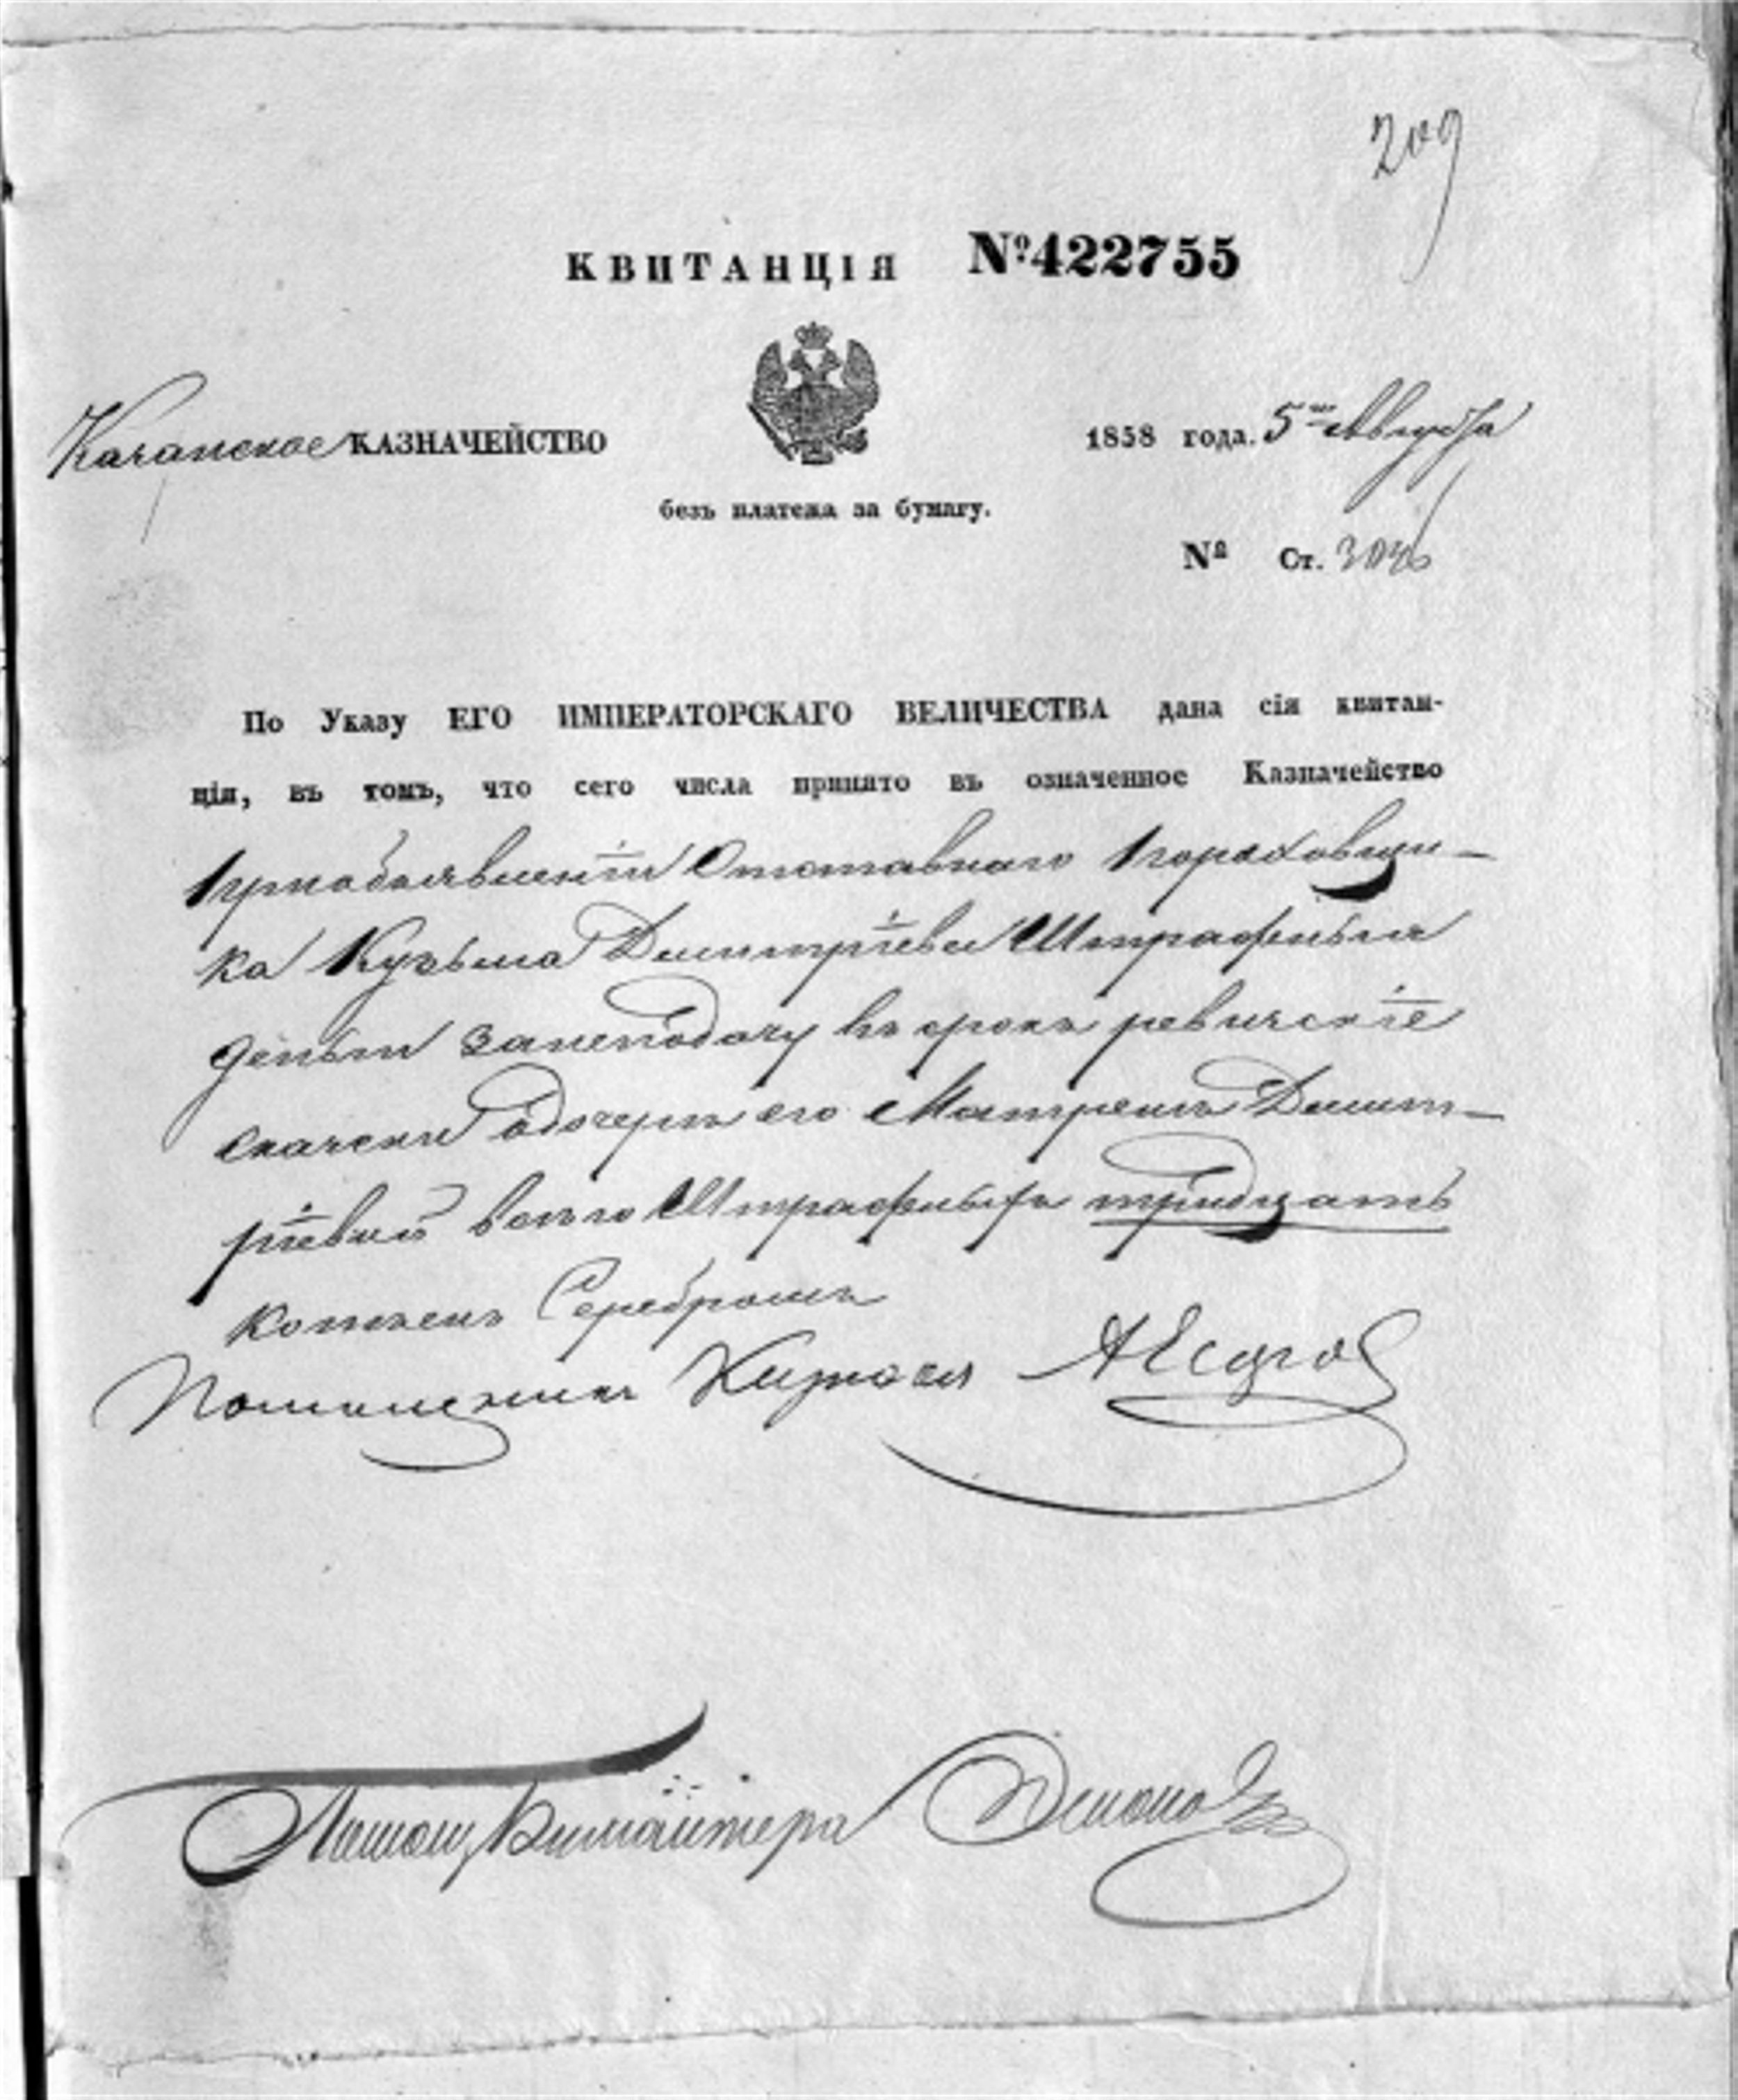 209
КВИТАНЦІЯ №422755
КАЗНАЧЕЙСТВО
1858 года. 5го Августа
безъ платежа за бумагу.
№ Ст.
По Указу ЕГО ИМПЕРАТОРСКАГО ВЕЛИЧЕСТВА дана сія квитан-
ція, въ томъ, что сего числа принято въ означенное Казначейство
приобъявленіи Отставнаго Пороховщи-
ка Кузьма Димитріева Штрафныя
деньги занеподачу въ срокъ ревизскіе
сказски одочери его Матрены Димит-
ріевой всего Штрафныхъ тридцать
копѣекъ Серебромъ
Помощникъ
Помощ Бухгалтера